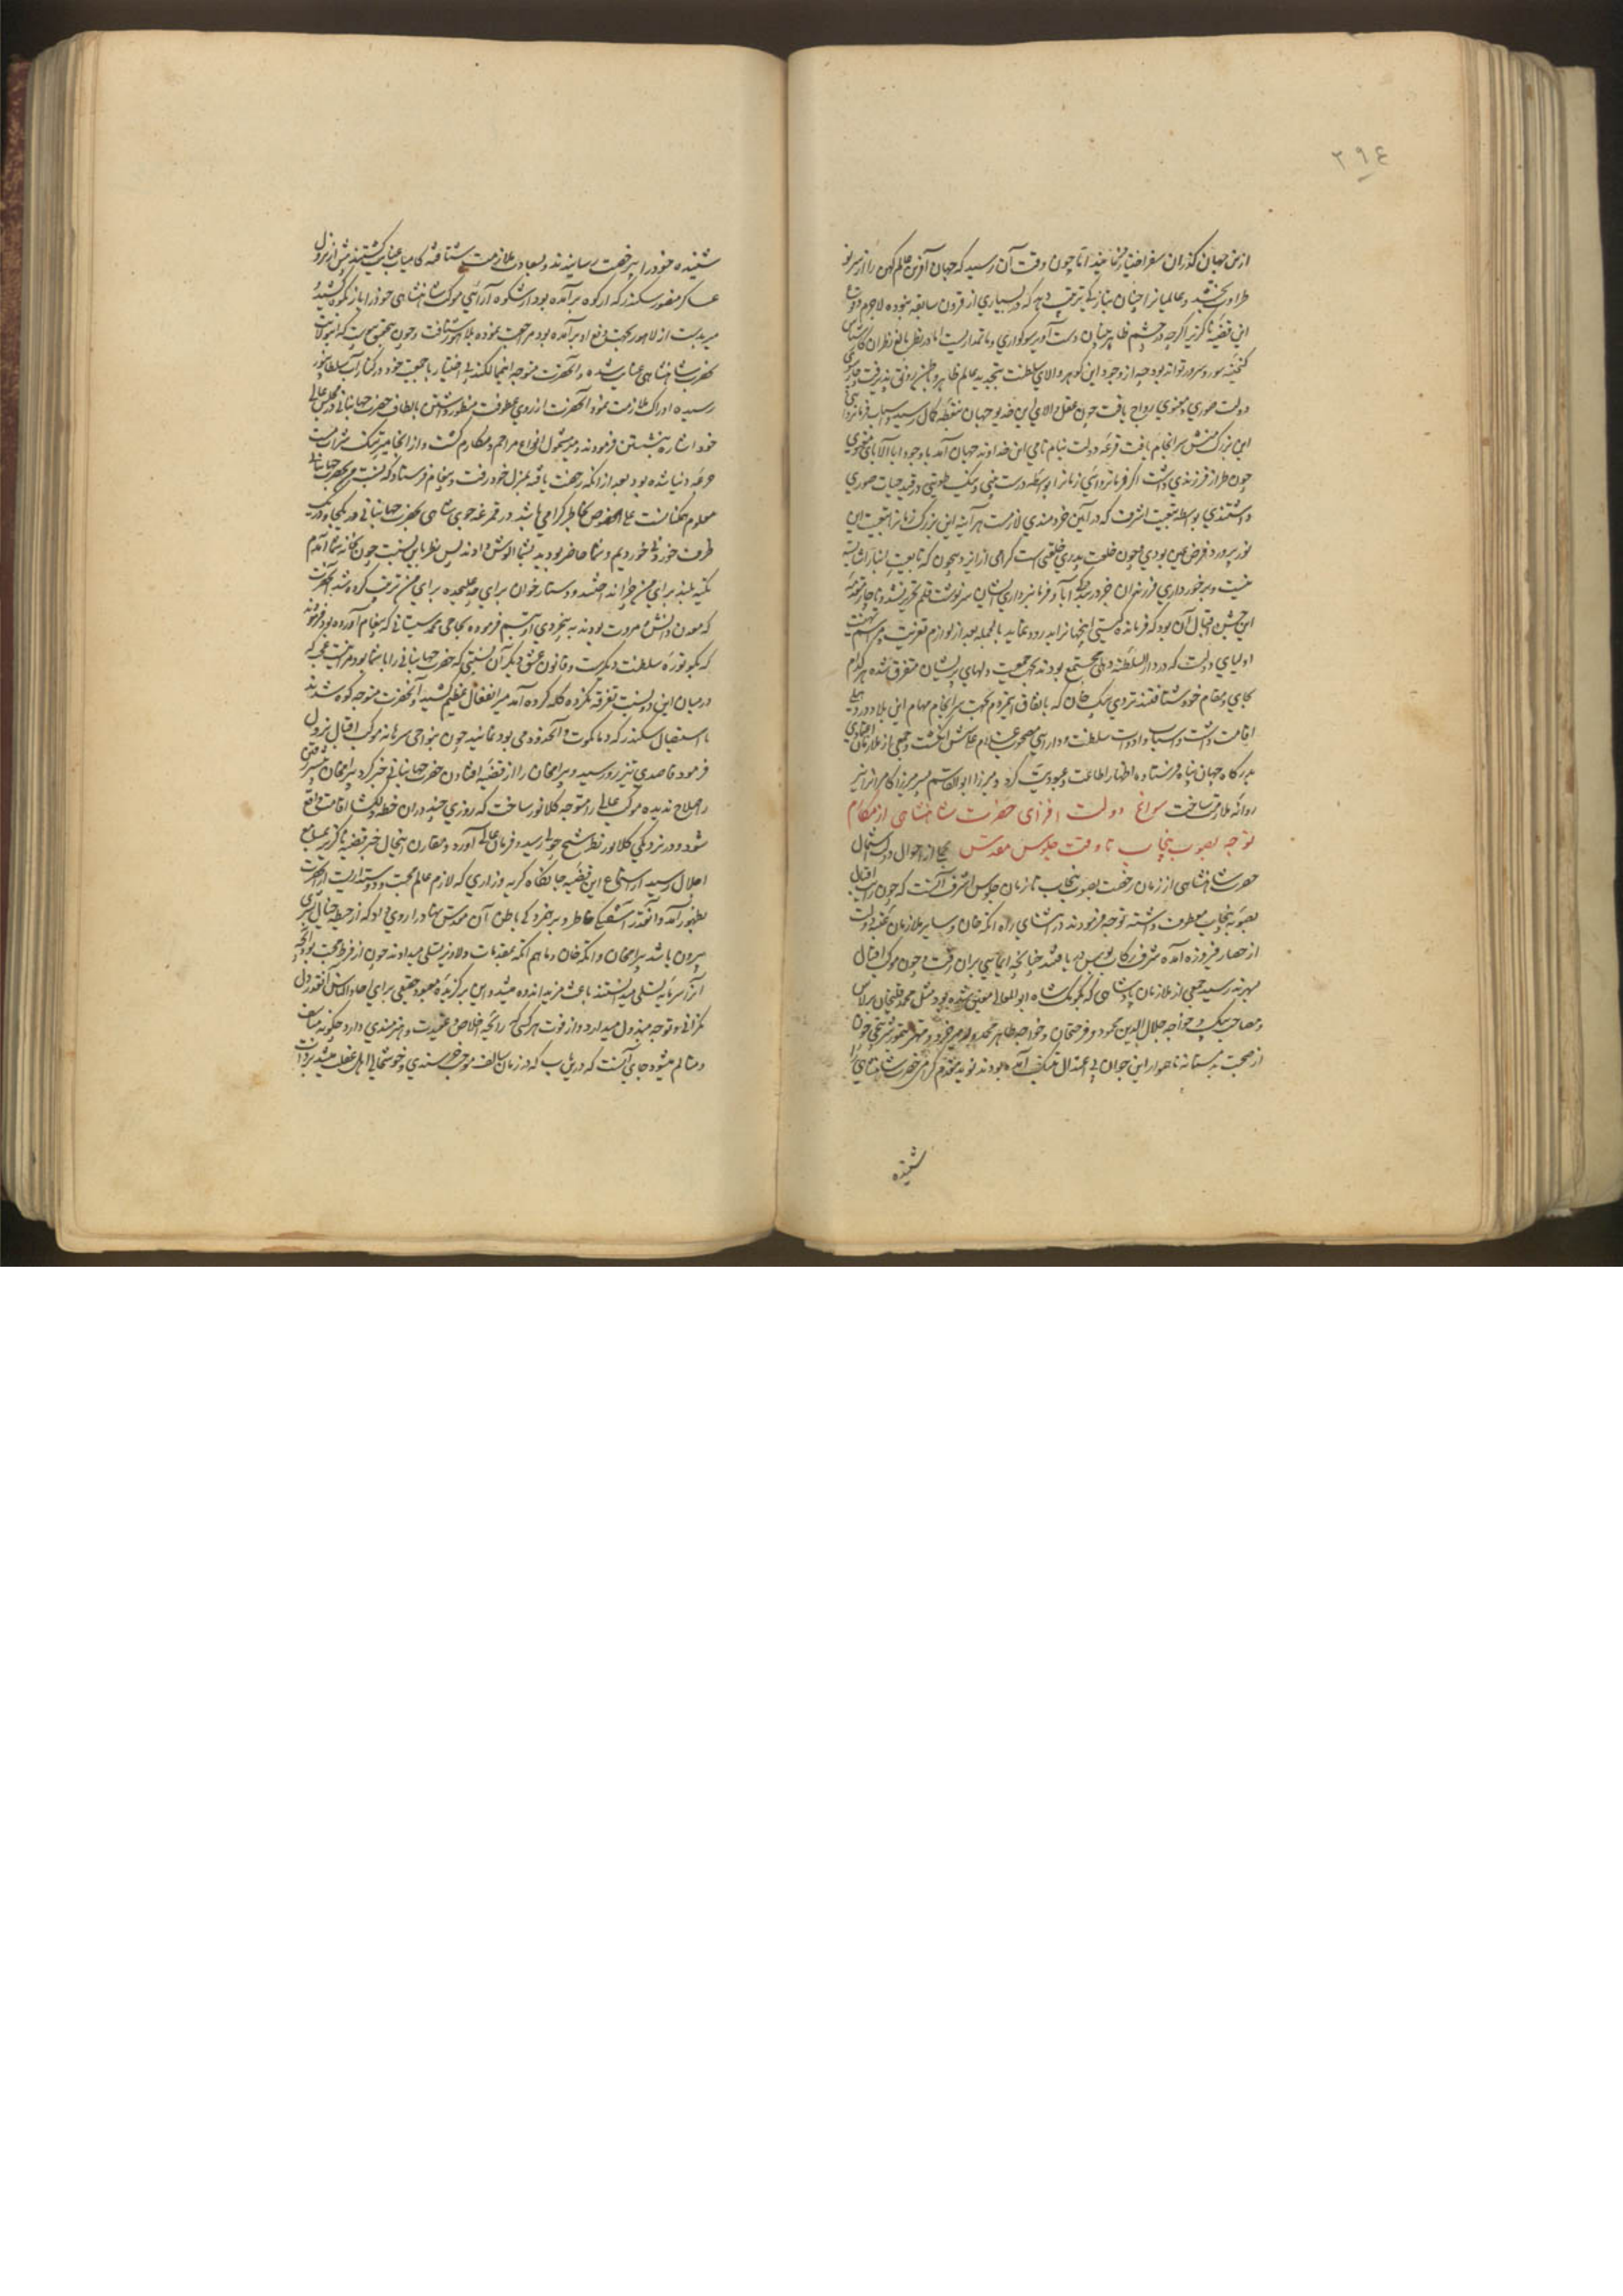 ۲۹۴
ازین جهان گذران سفر اختیار نمایند اما چون وقت آن رسید که جهان آفرین عالم کهن را از سر نو
طراوت بخشد و عالمیان را چنان بتازگی تربیت دهد که در بسیاری از قرون سابقه نبوده لاجرم وقوع
این قضیه ناگزیر اگرچه در چشم ظاهربینان دست آویز سوگواری و ماتمداریست اما در نظر بالغ نظران
گنجینه سور و سرور تواند بود چه از وجود این گوهر والای سلطنت بتجدید عالم ظاهر و باطن رونق پذیرفت
دولت صوری و معنوی رواج یافت چون عقل والای این خدیو جهان بنقطه کمال رسید و اسباب فرمانروایی
این بزرگ منش سرانجام یافت قرعه دولت بنام نامی این خداوند جهان آمد با وجود آبا آلابای معنوی
چون طراز فرزندی داشت اگر فرمانروائی زمان را بواسطه درست بینی و نیک طویتی در قید حیات صوری
داشتندی بواسطه تبعیت اشرف که در آیین خردمندی لازمست هر آینه این بزرگ زمان را تبعیت این
نور پرورد فرض عین بودی و چون خلعت پدری خلعتی است گرامی از ایزد بیچون که تابعیت را شایسته
نیست و برخورداری فرزندان خرد رسیده آبا و فرمانبرداری ایشان سرنوشت قلم تقدیر نشده ناچار مقدمه
این جشن اقبال آن بود که فرمانده گیتی اینجهان را بدرود نماید بالجمله بعد از لوازم تعزیت و مراسم تهنیت
اولیای دولت که در دار السلطنه دهلی مجتمع بودند بجهت جمعیت دلهای پریشان متفرق شده هر کدام
بجای و مقام خود شتافتند تردی بیک خان که باتفاق این مردم بجهت سرانجام مهام این بلاد در دهلی
اقامت داشت و اسباب و ادوات سلطنت و دارایی مصحوب غلام علی شش انگشت و جمعی از ملازمان اعتمادی
بدرگاه جهان پناه فرستاده اظهار اطاعت و عبودیت کرد و میرزا ابوالقاسم پسر میرزا کامران را نیز
روانه ملازمت ساخت سوانح دولت افزای حضرت شاهنشاهی از هنگام
توجه بصوب پنجاب تا وقت جلوس مقدس مجملی از احوال دولت اشتمال
حضرت شاهنشاهی از زمان رخصت بصوب پنجاب تا زمان جلوس اشرف آنست که چون رایت اقبال
بصوب پنجاب معطوف داشته توجه فرمودند در اثنای راه اتکه خان و سایر ملازمان عتبه دولت
از حصار فیروزه آمده شرف رکاب بوس دریافتند چنانچه ایمایی بران رفت و چون موکب اقبال
بسهرند رسید جمعی از ملازمان پادشاهی که بکومک شاه ابوالمعالی معین شده بود مثل محمد قلیخان برلاس
و مصاحب بیک و خواجه جلال الدین محمود و فرحتخان و خواجه طاهر محمد ولد میر خرد و مهتر تیمور شربتچی چون
از صحبت بدمستانه ناهموار این جوان بی اعتدال بتنگ آمده بودند نوید مقدم گرامی حضرت شاهنشاهی را
شنیده
شنیده خود را بی رخصت رسانیدند و بسعادت ملازمت شتافته کامیاب عنایت گشتند پیش از نزول
عساکر منصور سکندر که از کوه برآمده بود از شکوه آرائی موکب شاهنشاهی خود را باز بکوه کشید
میر بدست از لاهور بجهت دفع او برآمده بود مراجعت نموده بلاهور شتافت و چون بتحقیق پیوست که این ولایت
بحضرت شاهنشاهی عنایت شده و آنحضرت متوجه اینجا اند بی اختیار با جمعیت خود در کنار آب سلطانپور
رسیده ادراک ملازمت نمود آنحضرت از روی عطوفت منظور داشتن بالطاف حضرت جهانبانی در مجلس عالی
خود اشاره بنشستن فرمودند و مشمول انواع مراحم و مکارم گشت و از انجا میر تنک شراب مست
جرعه دنیا شده بود بعد از انکه رخصت یافته بمنزل خود رفت و پیغام فرستاد که نسبت من بحضرت جهانبانی
معلوم همگنانست علی الخصوص بخاطر گرامی باشد در قمرغه جوی شاهی بحضرت جهانبانی در یکجا و در یک
ظرف خوردنی خوردیم و شما حاضر بودید بشما الوش دادند پس نظر باین نسبت چون بخانه شما آمدم
تکیه نمد برای من چرا انداختند و دستارخوان برای چه علیحده برای من ترتیب کرده شد آنحضرت
که معدن دانش و مروت بودند به بیخردی او تبسم فرموده بحاجی محمد سیستانی که پیغام آورده بود فرمودند
که بگو توره سلطنت دیگرست و قانون عشق دیگر آن نسبتی که حضرت جهانبانی را با شما بود مرا نیست عجب که
درمیان این دو نسبت تفرقه نکرده گله کرده آمد میر انفعال عظیم کشید و آنحضرت متوجه کوه شدند
باستیصال سکندر که در مانکوت و آنحدود می بود نمایند چون بنواحی سرهانه موکب اقبال نزول
فرمود قاصدی تیزرو رسید و بیرامخان را از قضیه افتادن حضرت جهانبانی خبر کرد بیرامخان پیشتر رفتن
را صلاح ندیده موکب عالی را متوجه کلانور ساخت که روزی چند در ان خطه دلگشا اقامت واقع
شود و در نزدیکی کلانور نظر شیخ جولی رسید و فرمان عالی آورد و مقارن اینحال خبر قضیه ناگزیر بمسامع
اجلال رسید از استماع این قضیه جانکاه گریه و زاری که لازم عالم محبت و دوستداریست از آنحضرت
بظهور آمد و آنقدر آشفتگی خاطر و بیخردی باطن آن مونس بهادر را روی داد که از حیطه خیال بشری
بیرون باشد بیرامخان و اتکه خان و ماهم انکه بمقدمات دلاویز تسلی میدادند چون از فرط محبت بود آنچه
آنرا سرمایه تسلی میدانستند باعث مزید اندوه میشد و این برگزیده معبود حقیقی برای احاد الناس آنقدر دل
نگرانی و توجه مبذول میدارد و از فوت هر کسی که رایحه اخلاص و عقیدت و هنرمندی دارد چگونه متاسف
و متالم میشود جای آنست که درین باب که در زمان سالف موجب خرسندی و خوشحالی اهل غفلت میشد